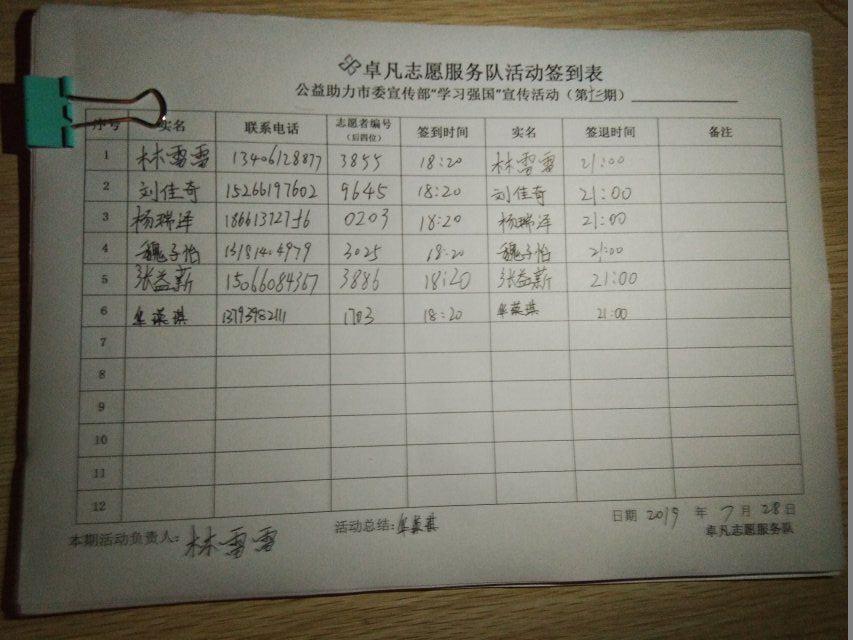 卓凡志愿服务队活动签到表
公益助力市委宣传部"学习强国"宣传活动（第十二期）
序号 实名 联系电话 志愿者编号（后四位） 签到时间 实名 签退时间 备注
1 林雪雪 13406128877 3855 18:20 林雪雪 21:00
2 刘佳奇 15266197602 9645 18:20 刘佳奇 21:00
3 杨瑞泽 0203 18:20 杨瑞泽 21:00
4 魏子怡 13181404979 3025 18:20 魏子怡 21:00
5 张益新 15066084367 3886 18:20 张益新 21:00
6 牟英琪 13793982111 1703 18:20 牟英琪 21:00
7
8
9
10
11
12
本期活动负责人：林雪雪 活动总结：牟英琪 日期 2019 年 7 月 28 日
卓凡志愿服务队